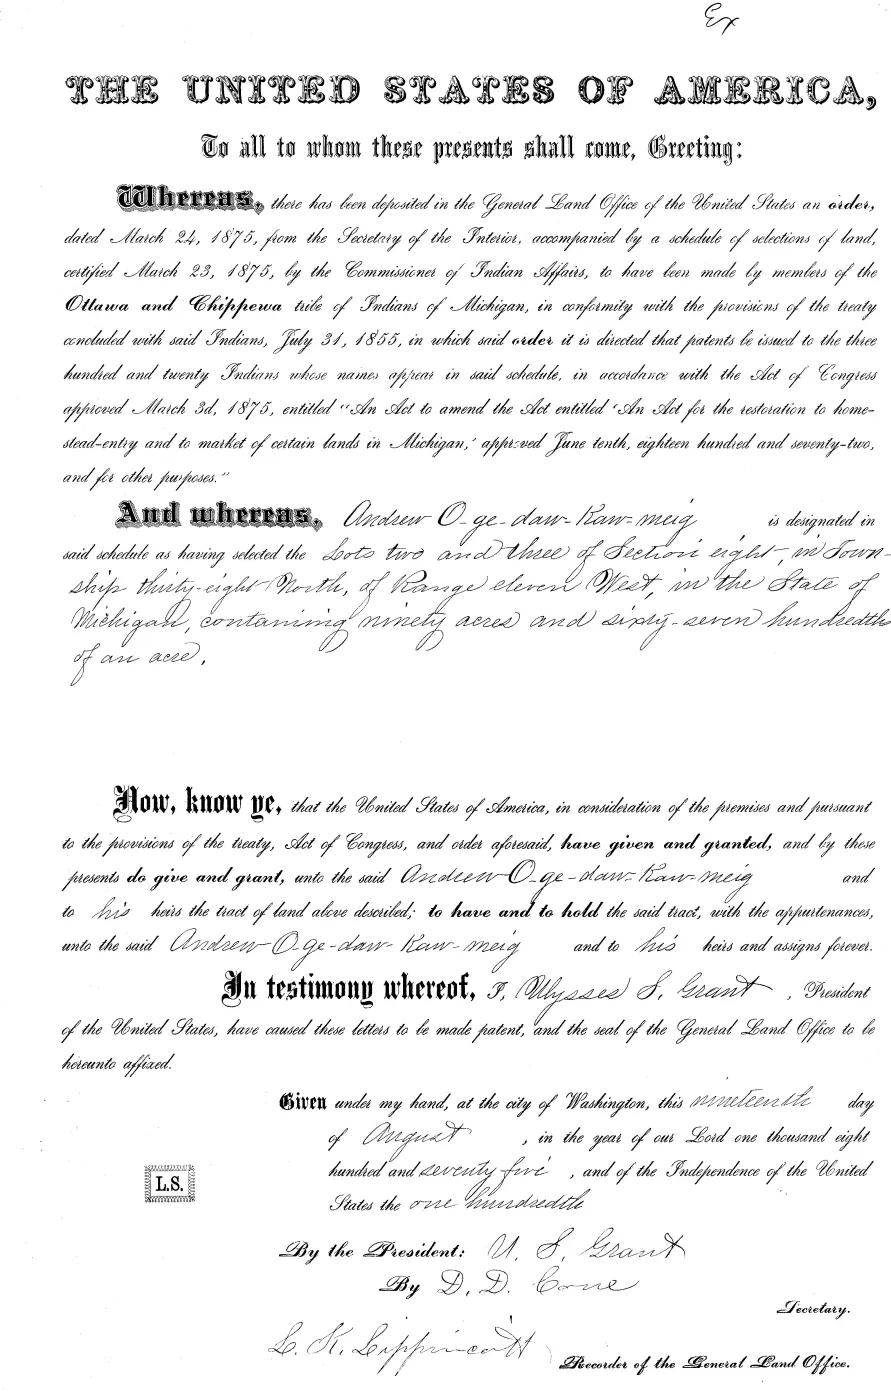 Ex
THE UNITED STATES OF AMERICA,
To all to whom these presents shall come, Greeting:
Whereas, there has been deposited in the General Land Office of the United States an order,
dated March 24, 1875, from the Secretary of the Interior, accompanied by a schedule of selections of land,
certified March 23, 1875, by the Commissioner of Indian Affairs, to have been made by members of the
Ottawa and Chippewa tribe of Indians of Michigan, in conformity with the provisions of the treaty
concluded with said Indians, July 31, 1855, in which said order it is directed that patents be issued to the three
hundred and twenty Indians whose names appear in said schedule, in accordance with the Act of Congress
approved March 3d, 1875, entitled "An Act to amend the Act entitled 'An Act for the restoration to home-
stead-entry and to market of certain lands in Michigan,' approved June tenth, eighteen hundred and seventy-two,
and for other purposes."
And whereas, Andrew O-ge-daw-Kaw-meig is designated in
said schedule as having selected the Lots two and three of Section eight, in Town-
ship thirty-eight North, of Range eleven West, in the State of
Michigan, containing ninety acres and sixty-seven hundredths
of an acre.
Now, know ye, that the United States of America, in consideration of the premises and pursuant
to the provisions of the treaty, Act of Congress, and order aforesaid, have given and granted, and by these
presents do give and grant, unto the said Andrew O-ge-daw-Kaw-meig and
to his heirs the tract of land above described; to have and to hold the said tract, with the appurtenances,
unto the said Andrew O-ge-daw-Kaw-meig and to his heirs and assigns forever.
In testimony whereof, I, Ulysses S. Grant, President
of the United States, have caused these letters to be made patent, and the seal of the General Land Office to be
hereunto affixed.
Given under my hand, at the city of Washington, this nineteenth day
of August, in the year of our Lord one thousand eight
hundred and seventy five, and of the Independence of the United
L.S.
States the one hundredth
By the President: U. S. Grant
By D. D. Cone
Secretary.
L. K. Lippincott
Recorder of the General Land Office.